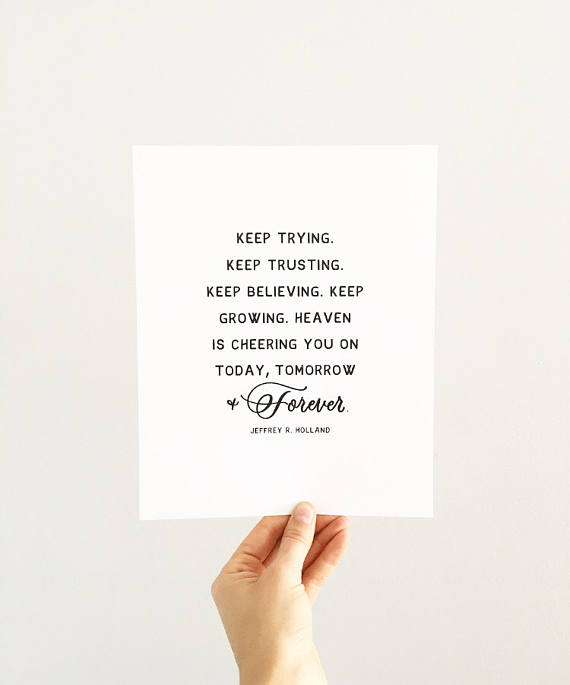 KEEP TRYING.
KEEP TRUSTING.
KEEP BELIEVING. KEEP
GROWING. HEAVEN
IS CHEERING YOU ON
TODAY, TOMORROW
& Forever.
JEFFREY R. HOLLAND